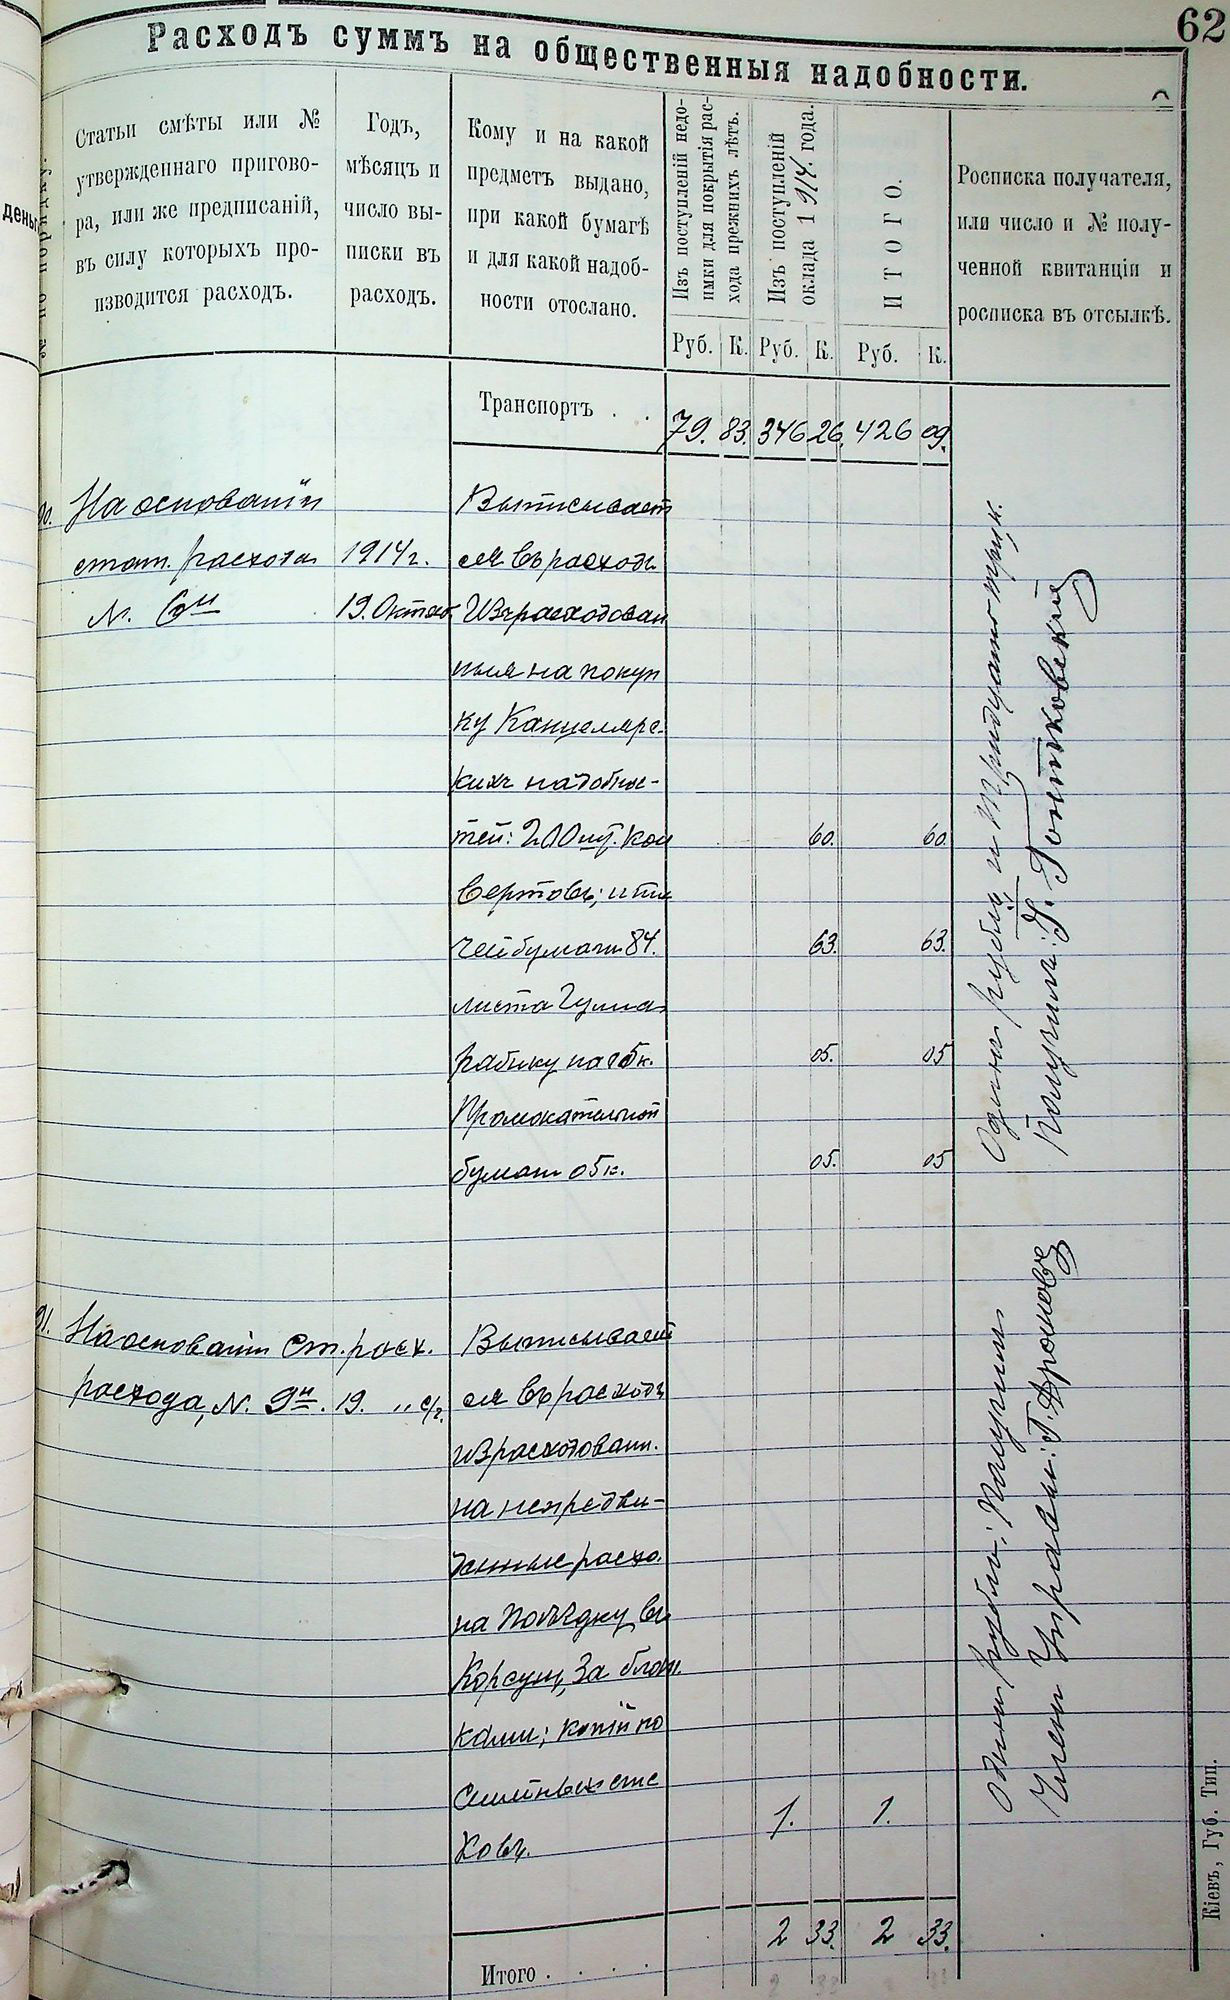 62
Расходъ суммъ на общественныя надобности.
Статьи смѣты или №
утвержденнаго пригово-
ра, или же предписаній,
въ силу которыхъ про-
изводится расходъ.
Годъ,
мѣсяцъ и
число вы-
писки въ
расходъ.
Кому и на какой
предметъ выдано,
при какой бумагѣ
и для какой надоб-
ности отослано.
Изъ поступленій недо-
имки для покрытія рас-
хода прежнихъ лѣтъ.
Изъ поступленій
оклада 1914. года.
ИТОГО.
Росписка получателя,
или число и № полу-
ченной квитанціи и
росписка въ отсылкѣ.
Руб. К. Руб. К. Руб. К.
Транспортъ . . 79. 83. 346 26. 426 09.
На основаніи
стат. расхода
N. 6й
1914 г.
19. Октяб.
Выписывает
ся въ расходъ
Израсходован
ныя на покуп
ку Канцелярс-
кихъ надобнос-
тей: 200 шт. кон 60. 60.
вертовъ; и пи
чей бумаги 84. 63. 63.
листа Гумиа
рабику на 05 к. 05. 05
Промокательной
бумаги 05 к. 05. 05
Одинъ рубль и Тридцать три к.
Получилъ:
91. На основаніи Ст. расх.
расхода, N. 9й. 19. „ с/г.
Выписывает
ся въ расходъ
израсходован.
на непредви-
денные расхо.
на Поѣздку въ
Корсунь, За блан
ками; копій по
семейныхъ спис
ковъ. 1. 1.
Одинъ рубль; Получилъ
Членъ Управы: Г. Ароновъ
Итого . . . . 2 33. 2 33.
Кіевъ, Губ. Тип.